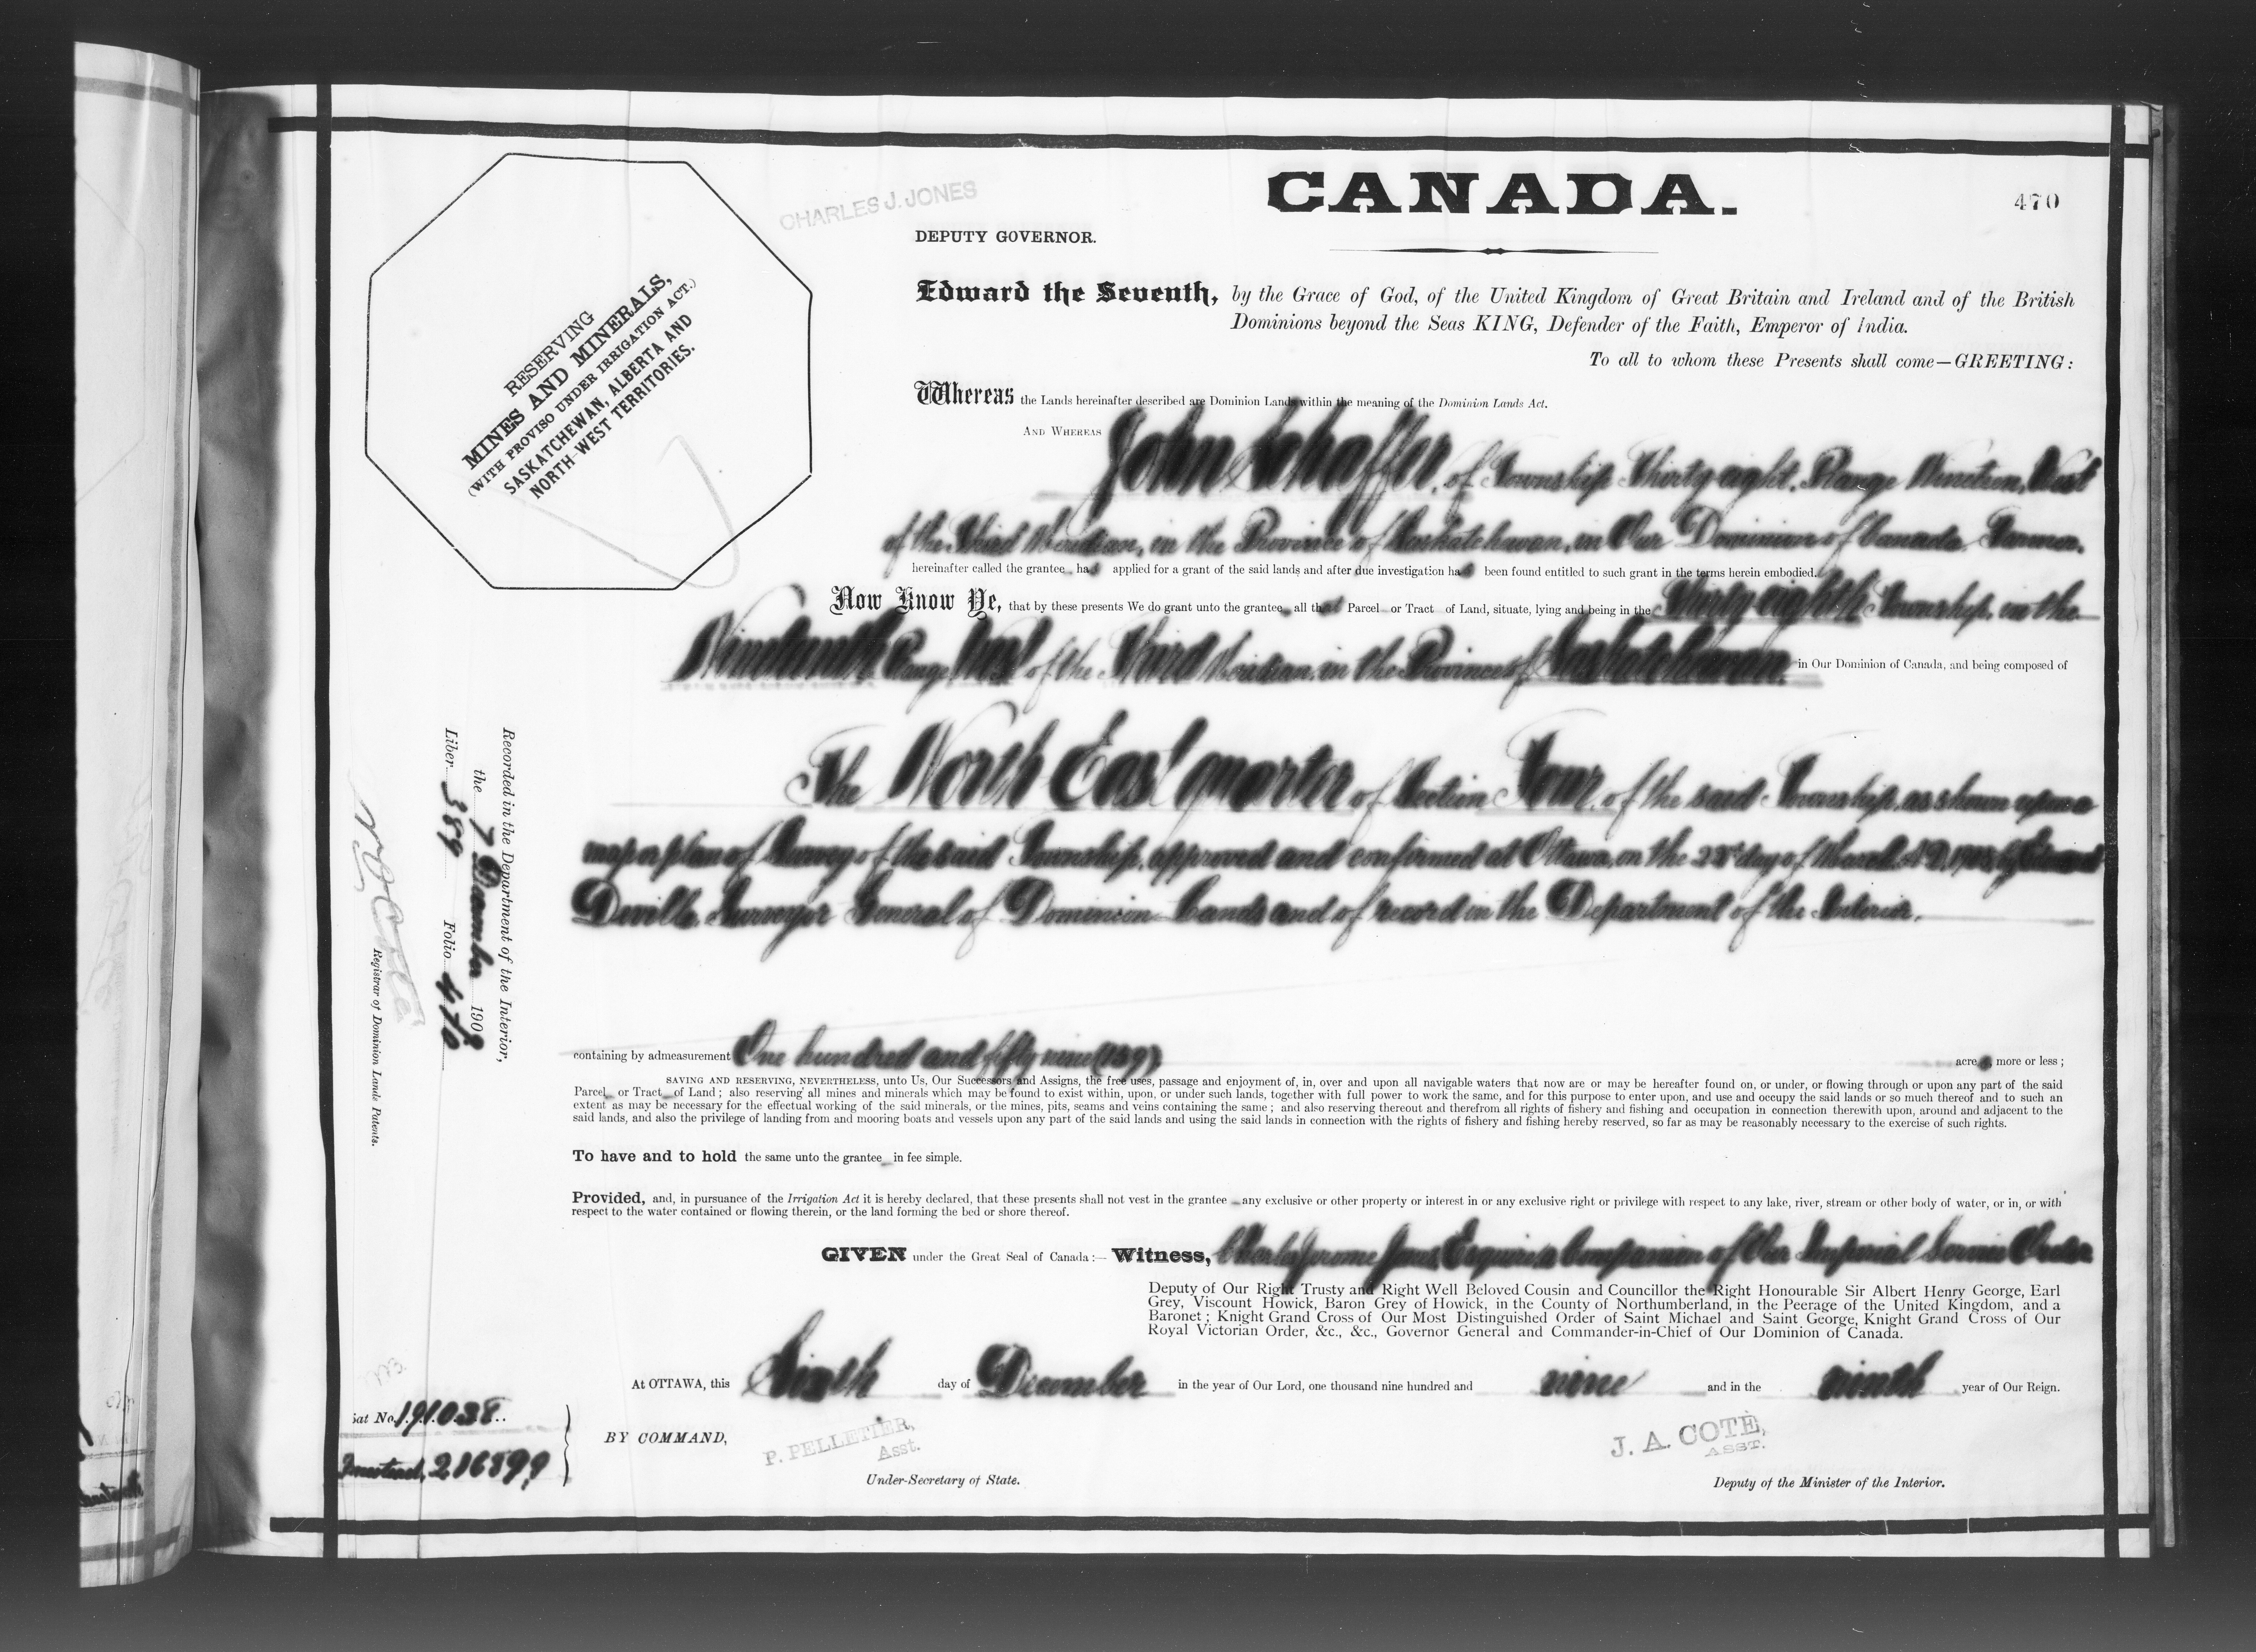 CANADA.
470
CHARLES J. JONES
DEPUTY GOVERNOR.
RESERVING
MINES AND MINERALS,
(WITH PROVISO UNDER IRRIGATION ACT.)
SASKATCHEWAN, ALBERTA AND
NORTH-WEST TERRITORIES.
Edward the Seventh, by the Grace of God, of the United Kingdom of Great Britain and Ireland and of the British
Dominions beyond the Seas KING, Defender of the Faith, Emperor of India.
To all to whom these Presents shall come—GREETING:
Whereas the Lands hereinafter described are Dominion Lands within the meaning of the Dominion Lands Act.
AND WHEREAS John Schaffer, of Township Thirty-eight, Range Nineteen, West
of the Third Meridian, in the Province of Saskatchewan, in Our Dominion of Canada, Farmer,
hereinafter called the grantee, has applied for a grant of the said lands and after due investigation has been found entitled to such grant in the terms herein embodied.
Now Know Ye, that by these presents We do grant unto the grantee all that Parcel or Tract of Land, situate, lying and being in the Thirty-eighth Township, in the
Nineteenth Range West of the Third Meridian, in the Province of Saskatchewan, in Our Dominion of Canada, and being composed of
The North East quarter of Section Four, of the said Township, as shown upon a
map or plan of Survey of the said Township, approved and confirmed at Ottawa, on the day of March A.D. by Edouard
Deville, Surveyor General of Dominion Lands and of record in the Department of the Interior.
containing by admeasurement One hundred and fifty nine (159) acres, more or less;
SAVING AND RESERVING, NEVERTHELESS, unto Us, Our Successors and Assigns, the free uses, passage and enjoyment of, in, over and upon all navigable waters that now are or may be hereafter found on, or under, or flowing through or upon any part of the said
Parcel or Tract of Land; also reserving all mines and minerals which may be found to exist within, upon, or under such lands, together with full power to work the same, and for this purpose to enter upon, and use and occupy the said lands or so much thereof and to such an
extent as may be necessary for the effectual working of the said minerals, or the mines, pits, seams and veins containing the same; and also reserving thereout and therefrom all rights of fishery and fishing and occupation in connection therewith upon, around and adjacent to the
said lands, and also the privilege of landing from and mooring boats and vessels upon any part of the said lands and using the said lands in connection with the rights of fishery and fishing hereby reserved, so far as may be reasonably necessary to the exercise of such rights.
To have and to hold the same unto the grantee in fee simple.
Provided, and, in pursuance of the Irrigation Act it is hereby declared, that these presents shall not vest in the grantee any exclusive or other property or interest in or any exclusive right or privilege with respect to any lake, river, stream or other body of water, or in, or with
respect to the water contained or flowing therein, or the land forming the bed or shore thereof.
GIVEN under the Great Seal of Canada:— Witness, Charles Jerome Jones, Esquire, a Companion of Our Imperial Service Order
Deputy of Our Right Trusty and Right Well Beloved Cousin and Councillor the Right Honourable Sir Albert Henry George, Earl
Grey, Viscount Howick, Baron Grey of Howick, in the County of Northumberland, in the Peerage of the United Kingdom, and a
Baronet; Knight Grand Cross of Our Most Distinguished Order of Saint Michael and Saint George, Knight Grand Cross of Our
Royal Victorian Order, &c., &c., Governor General and Commander-in-Chief of Our Dominion of Canada.
At OTTAWA, this Sixth day of December in the year of Our Lord, one thousand nine hundred and nine and in the ninth year of Our Reign.
BY COMMAND,
P. PELLETIER,
Asst.
Under-Secretary of State.
J. A. COTÉ,
ASST.
Deputy of the Minister of the Interior.
Recorded in the Department of the Interior,
the 7 December 1909
Liber 389 Folio 470
Registrar of Dominion Lands Patents.
No. 191038
Homestead, 216899